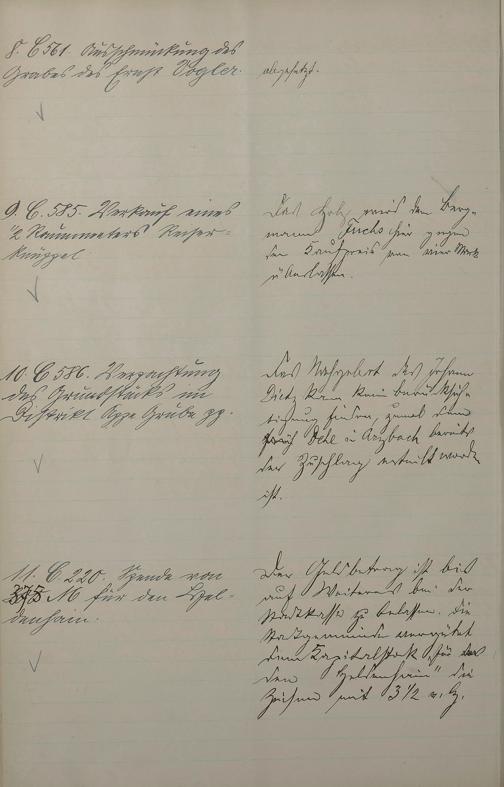 8. C 561. Ausschmückung des
Grabes des Ernst Vogler.
abgesetzt.
9. C. 585. Verkauf eines
1/2 Raummeters Reiser-
knüppel
Das Holz wird dem Berg-
mann Fuchs hier gegen
den Kaufpreis von vier Mark
überlassen.
10. C 586. Verpachtung
des Grundstücks im
Distrikt Grube pp.
Das Nachgebot des Johann
Dietz kann keine Berücksich-
tigung finden, zumal dem
Dehl in Arzbach bereits
der Zuschlag erteilt worden
ist.
11. C. 220. Spende von
375 M für den Hel-
denhain.
Der Geldbetrag ist bis
auf Weiteres bei der
Stadtkasse zu belassen. Die
Stadtgemeinde vergütet
dem Kapitalstock „für
den Heldenhain" die
Zinsen mit 3 1/2 v. H.